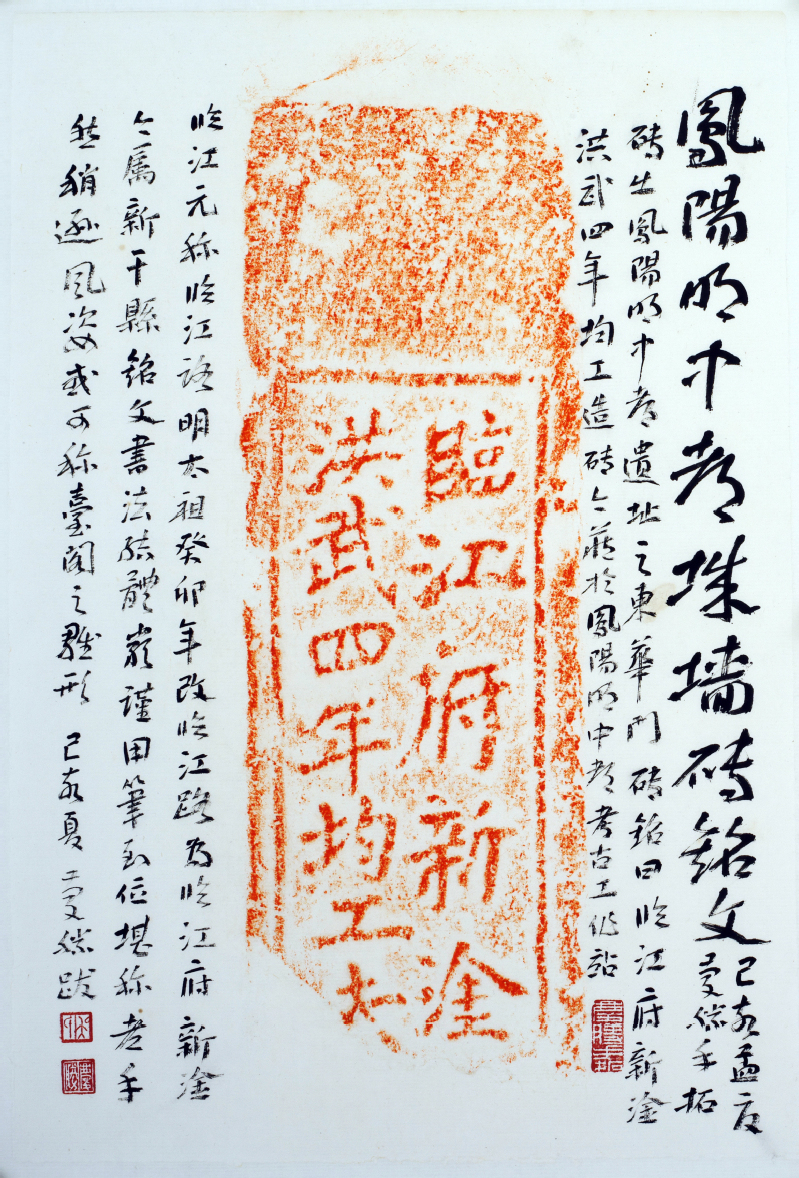 鳳陽明中都城墻磚銘文
己亥孟夏
夐然手拓
磚出鳳陽明中都遺址之東華門 磚銘曰臨江府新淦
洪武四年均工造磚今藏於鳳陽明中都考古工作站
臨江府新淦
洪武四年均工
臨江元称臨江路明太祖癸卯年改臨江路為臨江府新淦
今属新干縣銘文書法結體嚴謹用筆到位堪称老手
然稍遜風姿或可称臺閣之雛形 己亥夏 夐然跋